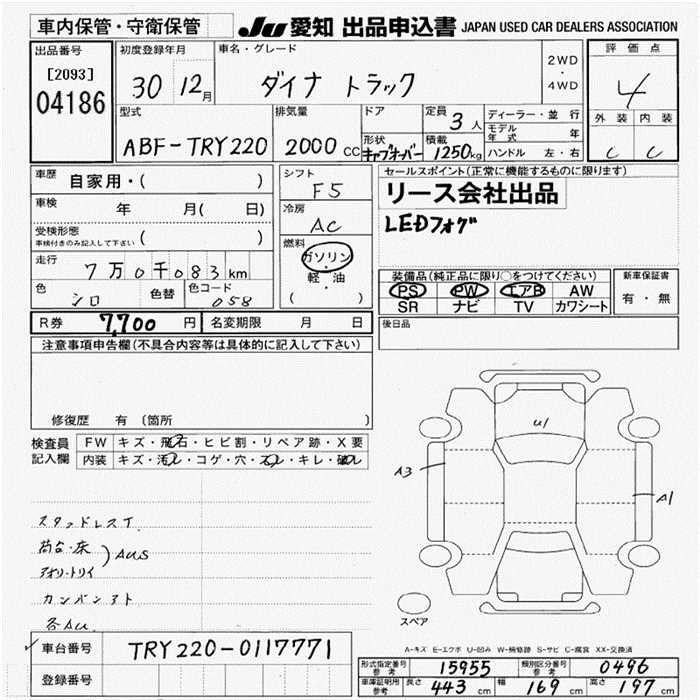 車内保管・守衛保管
JU 愛知 出品申込書 JAPAN USED CAR DEALERS ASSOCIATION
出品番号
[2093]
04186
初度登録年月
30 12月
車名・グレード
ダイナ トラック
2WD
・
4WD
評価点
4
外装 内装
C C
型式
ABF-TRY220
排気量
2000 CC
ドア
形状
キャブオーバー
定員
3人
積載
1250kg
ディーラー・並行
モデル年式 年
ハンドル 左・右
車歴 自家用・( )
車検 年 月( 日)
受検形態
車検付きのみ記入して下さい ( )
走行 7万0千083km
色 シロ 色替 色コード 058
シフト
F5
冷房
AC
燃料
ガソリン
・
軽・油
( )
セールスポイント(正常に機能するものに限ります)
リース会社出品
LEDフォグ
装備品(純正品に限り○をつけてください)
PS PW エアB AW
SR ナビ TV カワシート
新車保証書
有・無
R券 7,700円 名変期限 月 日
後日品
注意事項申告欄(不具合内容等は具体的に記入して下さい)
修復歴 有 (箇所
検査員記入欄
FW キズ・飛石・ヒビ割・リペア跡・X要
内装 キズ・汚レ・コゲ・穴・スレ・キレ・破レ
U1
A3
A1
スタッドレスT
荷台・床
アオリ・トリイ
)AUS
カンバンアト
各AU
スペア
A-キズ E-エクボ U-凹み W-補修跡 S-サビ C-腐食 XX-交換済
車台番号 TRY220-0117771
登録番号
形式指定番号参考 15955 類別区分番号参考 0496
車庫証明用参考 長さ 443cm 幅 169cm 高さ 197cm